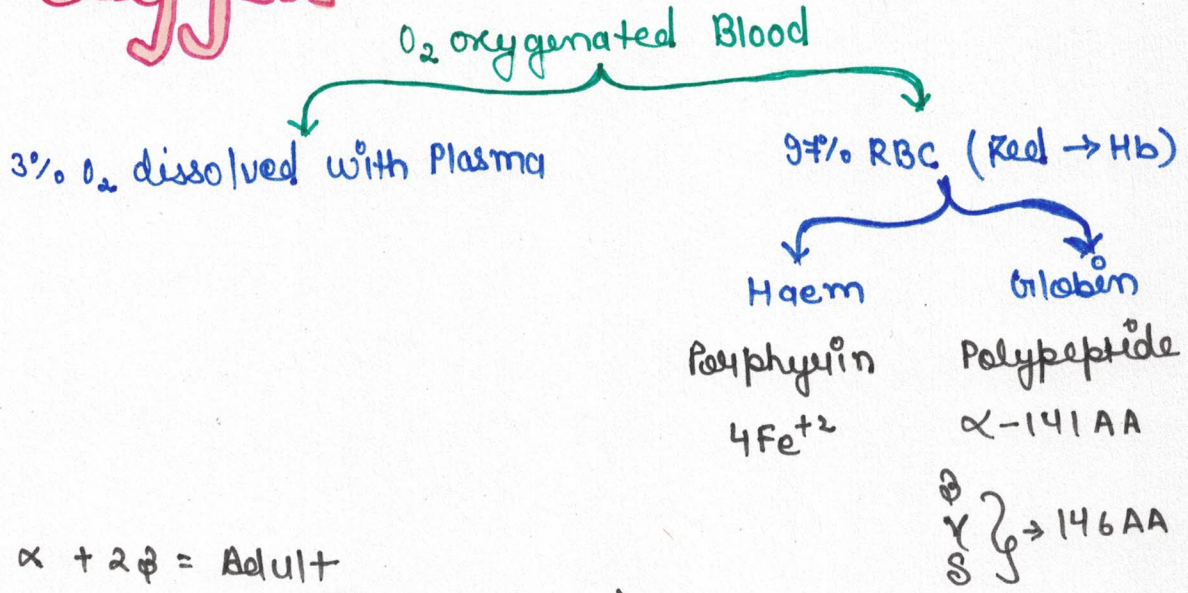 O₂ oxygenated Blood
3% O₂ dissolved with Plasma
97% RBC (Red → Hb)
Haem
Globin
Porphyrin
Polypeptide
4Fe⁺²
α-141 AA
β
γ
δ
→ 146 AA
α + 2β = Adult